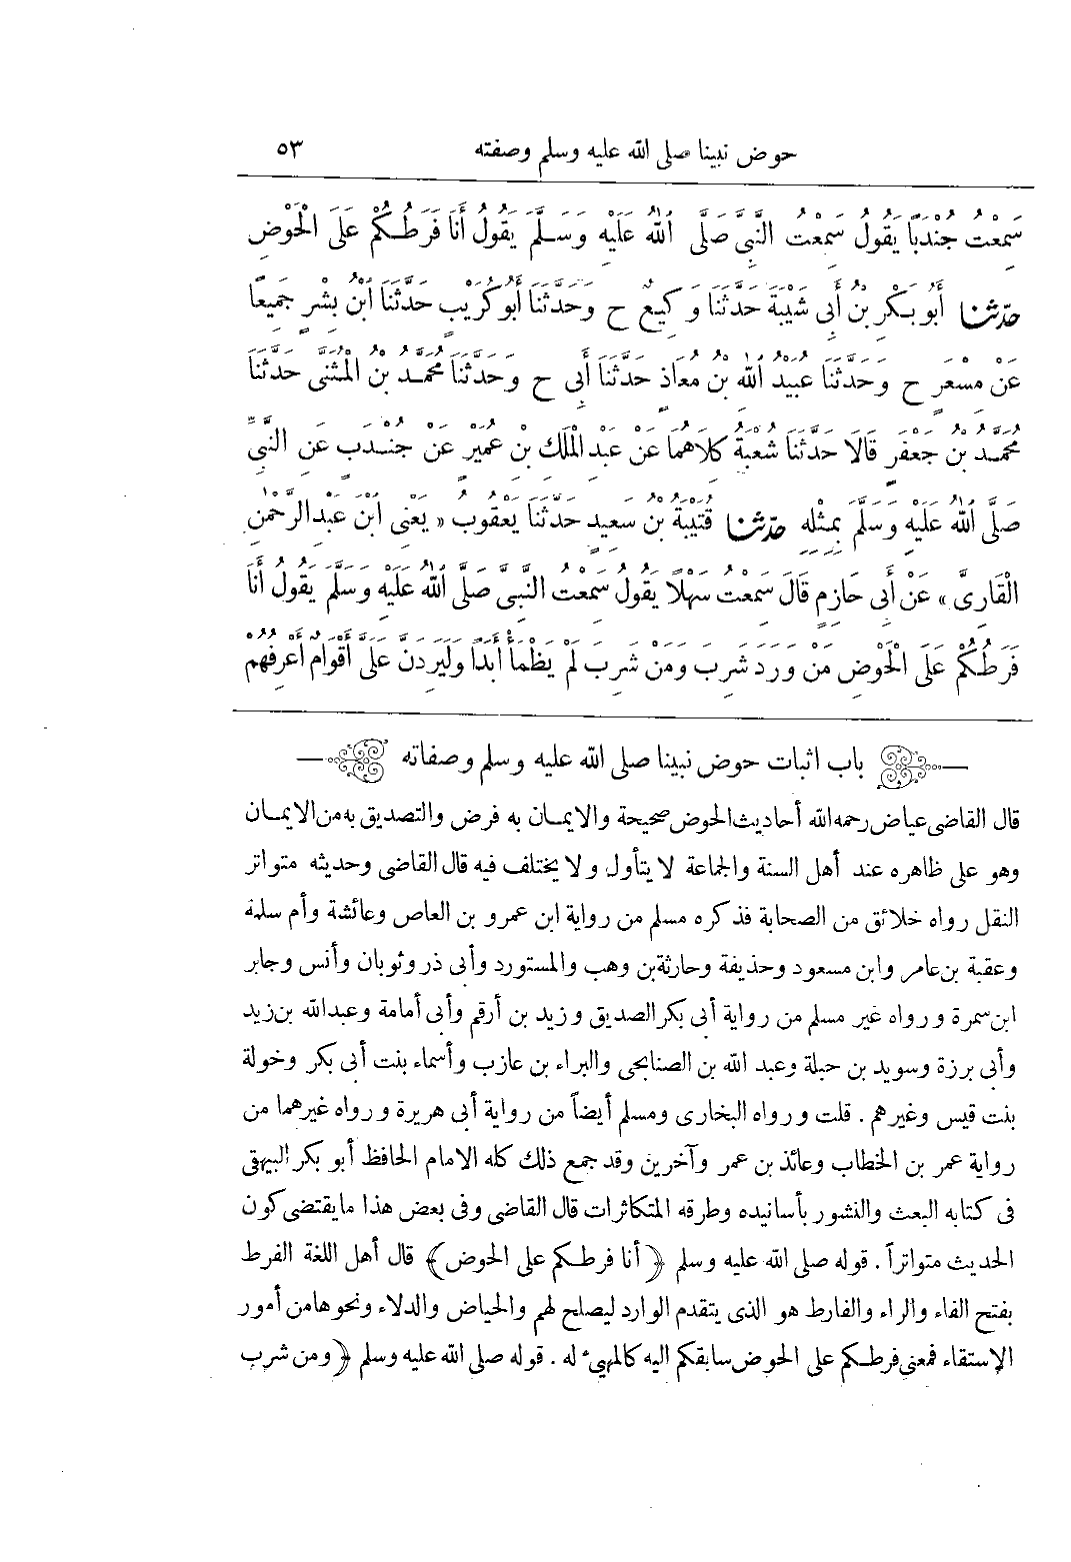 حوض نبينا صلى الله عليه وسلم وصفته ٥٣
سَمِعْتُ جُنْدَبًا يَقُولُ سَمِعْتُ النَّبِيَّ صَلَّى اللهُ عَلَيْهِ وَسَلَّمَ يَقُولُ أَنَا فَرَطُكُمْ عَلَى الْحَوْضِ
حدّثنا أَبُو بَكْرِ بْنُ أَبِي شَيْبَةَ حَدَّثَنَا وَكِيعٌ ح وَحَدَّثَنَا أَبُو كُرَيْبٍ حَدَّثَنَا ابْنُ بِشْرٍ جَمِيعًا
عَنْ مِسْعَرٍ ح وَحَدَّثَنَا عُبَيْدُ اللهِ بْنُ مُعَاذٍ حَدَّثَنَا أَبِي ح وَحَدَّثَنَا مُحَمَّدُ بْنُ الْمُثَنَّى حَدَّثَنَا
مُحَمَّدُ بْنُ جَعْفَرٍ قَالَا حَدَّثَنَا شُعْبَةُ كِلَاهُمَا عَنْ عَبْدِ الْمَلِكِ بْنِ عُمَيْرٍ عَنْ جُنْدَبٍ عَنِ النَّبِيِّ
صَلَّى اللهُ عَلَيْهِ وَسَلَّمَ بِمِثْلِهِ حدّثنا قُتَيْبَةُ بْنُ سَعِيدٍ حَدَّثَنَا يَعْقُوبُ « يَعْنِى ابْنَ عَبْدِ الرَّحْمٰنِ
الْقَارِىَّ » عَنْ أَبِي حَازِمٍ قَالَ سَمِعْتُ سَهْلًا يَقُولُ سَمِعْتُ النَّبِيَّ صَلَّى اللهُ عَلَيْهِ وَسَلَّمَ يَقُولُ أَنَا
فَرَطُكُمْ عَلَى الْحَوْضِ مَنْ وَرَدَ شَرِبَ وَمَنْ شَرِبَ لَمْ يَظْمَأْ أَبَدًا وَلَيَرِدَنَّ عَلَىَّ أَقْوَامٌ أَعْرِفُهُمْ
باب اثبات حوض نبينا صلى الله عليه وسلم وصفاته
قال القاضى عياض رحمه الله أحاديث الحوض صحيحة والايمان به فرض والتصديق به من الايمان
وهو على ظاهره عند أهل السنة والجماعة لا يتأول ولا يختلف فيه قال القاضى وحديثه متواتر
النقل رواه خلائق من الصحابة فذكره مسلم من رواية ابن عمرو بن العاص وعائشة وأم سلمة
وعقبة بن عامر وابن مسعود وحذيفة وحارثة بن وهب والمستورد وأبى ذر وثوبان وأنس وجابر
ابن سمرة ورواه غير مسلم من رواية أبى بكر الصديق وزيد بن أرقم وأبى أمامة وعبدالله بن زيد
وأبى برزة وسويد بن حبلة وعبد الله بن الصنابحى والبراء بن عازب وأسماء بنت أبى بكر وخولة
بنت قيس وغيرهم . قلت ورواه البخارى ومسلم أيضاً من رواية أبى هريرة ورواه غيرهما من
رواية عمر بن الخطاب وعائذ بن عمر وآخرين وقد جمع ذلك كله الامام الحافظ أبو بكر البيهقى
فى كتابه البعث والنشور بأسانيده وطرقه المتكاثرات قال القاضى وفى بعض هذا ما يقتضى كون
الحديث متواتراً . قوله صلى الله عليه وسلم ﴿ أنا فرطكم على الحوض ﴾ قال أهل اللغة الفرط
بفتح الفاء والراء والفارط هو الذى يتقدم الوارد ليصلح لهم والحياض والدلاء ونحوها من أمور
الاستقاء فمعنى فرطكم على الحوض سابقكم اليه كالمهيء له . قوله صلى الله عليه وسلم ﴿ ومن شرب